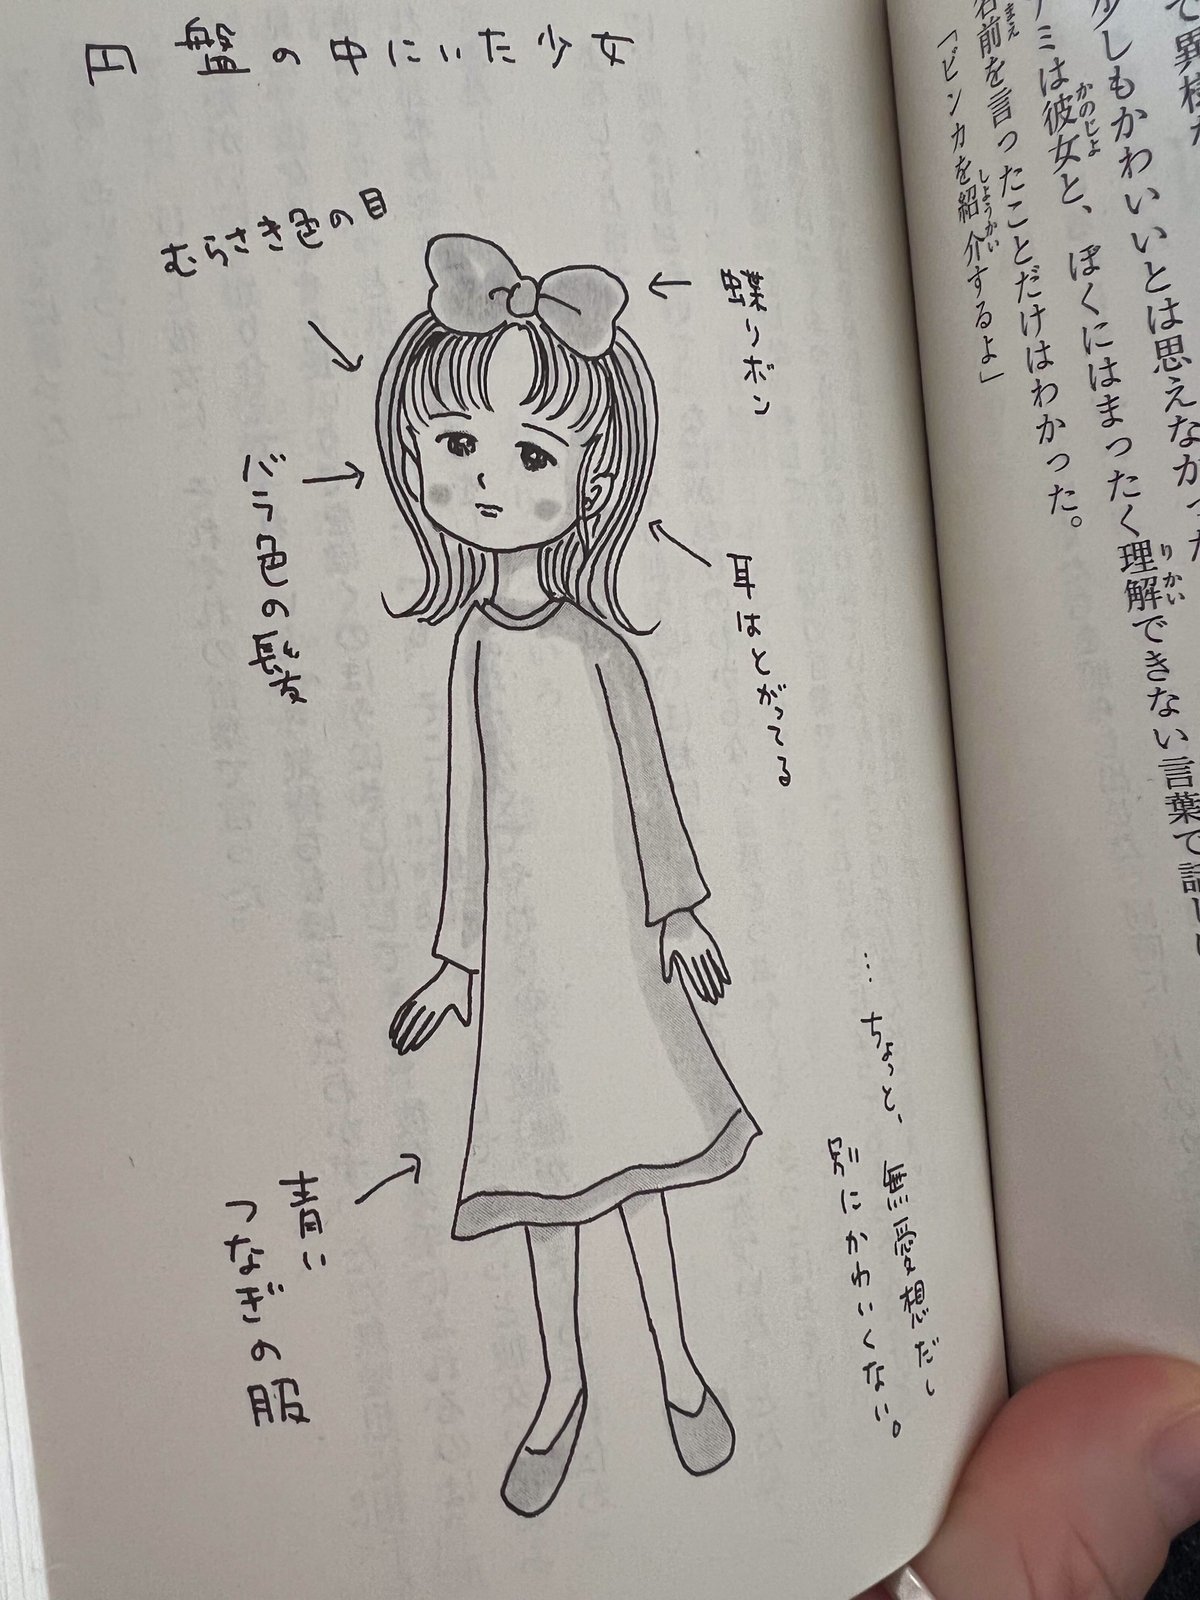 円盤の中にいた少女
むらさき色の目
蝶リボン
バラ色の髪
耳はとがってる
青い
つなぎの服
…ちょっと、無愛想だし
別にかわいくない。
で異様
少しもかわいいとは思えなかった
ミは彼女と、ぼくにはまったく理解できない言葉で話し
名前を言ったことだけはわかった。
「ビンカを紹介するよ」